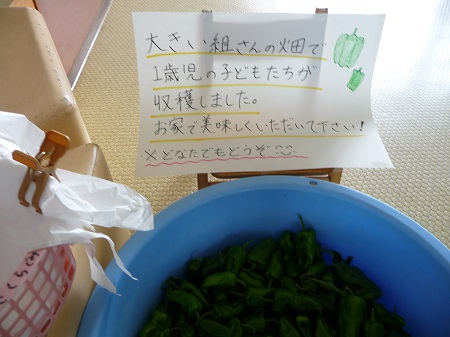 大きい組さんの畑で
1歳児の子どもたちが
収穫しました。
お家で美味しくいただいて下さい!
×どなたでもどうぞ